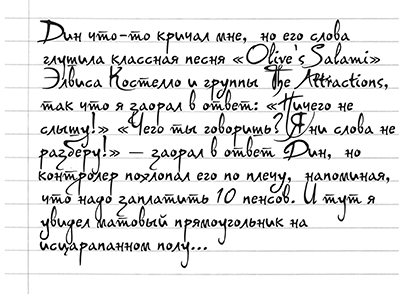 Дин что-то кричал мне, но его слова
глушила классная песня «Olive's Salami»
Элвиса Костелло и группы The Attractions,
так что я заорал в ответ: «Ничего не
слышу!» «Чего ты говорить? Я ни слова не
разберу!» — заорал в ответ Дин, но
контролер похлопал его по плечу, напоминая,
что надо заплатить 10 пенсов. И тут я
увидел матовый прямоугольник на
исцарапанном полу...